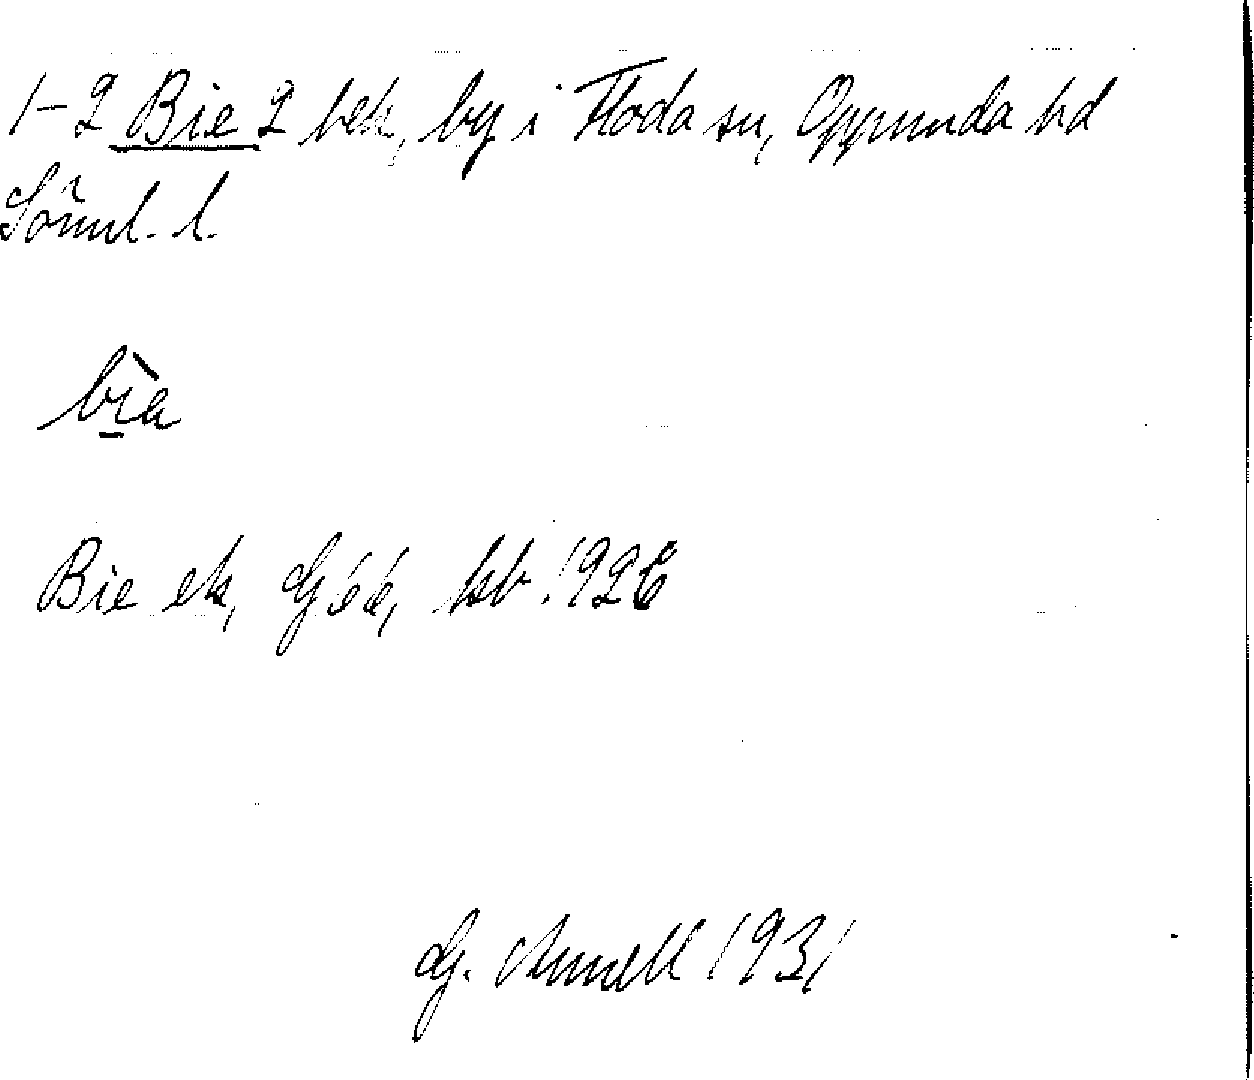 1-2 Bie 2 bek, by i Floda sn, Oppunda hd
Söml. l.
bìa
Bie ek, Gjéé, kb. 1926
G. Arnell 1931